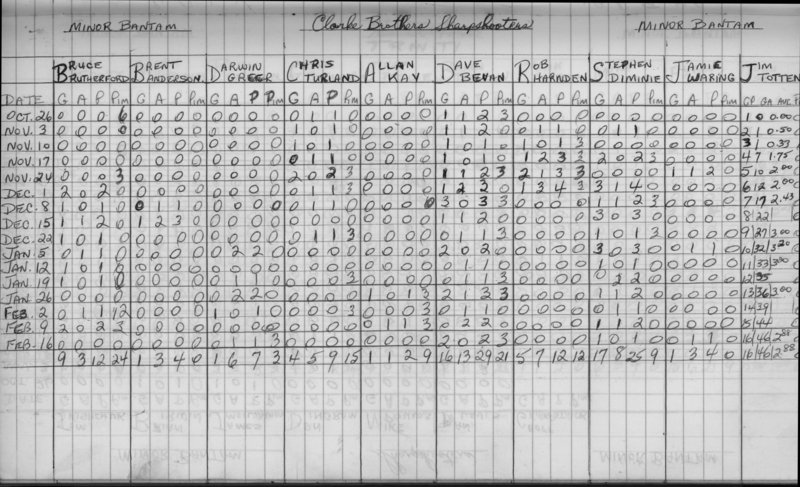 MINOR BANTAM Clarke Brothers Sharpshooters MINOR BANTAM
BRUCE BRENT DARWIN CHRIS ALLAN DAVE ROB STEPHEN JAMIE JIM
RUTHERFORD ANDERSON GREER TURLAND KAY BEVAN HARNDEN DIMINIE WARING TOTTEN
DATE G A P Pim G A P Pim G A P Pim G A P Pim G A P Pim G A P Pim G A P Pim G A P Pim G A P Pim GP GA AVE
OCT. 26 0 0 0 6 0 0 0 0 0 0 0 0 0 1 1 0 0 0 0 0 1 1 2 3 0 0 0 0 0 0 0 0 0 0 0 0 1 0 0.00
NOV. 3 0 0 0 0 0 0 0 0 0 0 0 0 1 0 1 0 0 0 0 0 1 1 2 0 0 1 1 0 0 1 1 0 0 0 0 0 2 1 0.50
NOV. 10 0 0 0 0 0 0 0 0 0 0 0 0 1 0 1 0 0 0 0 0 1 0 1 0 1 0 1 3 0 0 0 0 0 0 0 0 3 1 0.33
NOV. 17 0 0 0 0 0 0 0 0 0 0 0 0 0 1 1 0 0 0 0 0 1 0 1 0 1 2 3 3 2 0 2 3 0 0 0 0 4 7 1.75
NOV. 24 0 0 0 3 0 0 0 0 0 0 0 0 2 0 2 3 0 0 0 0 1 1 2 3 2 1 3 3 0 0 0 0 1 1 2 0 5 10 2.00
DEC. 1 2 0 2 0 0 0 0 0 0 0 0 0 0 1 1 3 0 0 0 0 1 2 3 0 1 3 4 3 3 1 4 0 0 0 0 0 6 12 2.00
DEC. 8 1 0 1 0 0 1 1 0 0 0 0 0 0 0 0 0 0 0 0 0 3 0 3 3 0 0 0 0 1 1 2 3 0 0 0 0 7 17 2.43
DEC. 15 1 1 2 0 1 2 3 0 0 0 0 0 0 0 0 0 0 0 0 0 1 1 2 0 0 0 0 0 3 0 3 0 0 0 0 0 8 22
DEC. 22 1 0 1 0 0 0 0 0 0 0 0 0 0 1 1 3 0 0 0 0 0 1 1 3 0 0 0 0 1 0 1 3 0 0 0 0 9 27 3.00
JAN. 5 1 0 1 0 0 0 0 0 0 2 2 0 0 0 0 0 0 0 0 0 2 0 2 0 0 0 0 0 3 0 3 0 0 1 1 0 10 32 3.20
JAN. 12 1 0 1 0 0 0 0 0 0 0 0 0 0 0 0 0 0 0 0 0 0 1 1 0 0 0 0 0 1 0 1 0 0 0 0 0 11 33 3.00
JAN. 19 1 0 1 0 0 0 0 0 0 1 1 0 0 0 0 3 0 0 0 0 0 1 1 3 0 0 0 0 0 2 2 0 0 0 0 0 12 35
JAN. 26 0 0 0 0 0 0 0 0 0 2 2 0 0 0 0 0 1 0 1 3 2 1 3 3 0 0 0 0 1 1 2 0 0 0 0 0 13 36 3.00
FEB. 2 0 1 1 12 0 0 0 0 1 0 1 0 0 0 0 3 0 0 0 3 0 1 1 0 0 0 0 0 0 1 1 0 0 0 0 0 14 39
FEB. 9 2 0 2 3 0 0 0 0 0 0 0 0 0 0 0 0 0 1 1 3 0 2 2 0 0 0 0 0 1 1 2 0 0 0 0 0 15 44
FEB. 16 0 0 0 0 0 0 0 0 0 1 1 3 0 0 0 0 0 0 0 0 2 0 2 3 0 0 0 0 1 0 1 0 0 1 1 0 16 46 2.88
9 3 12 24 1 3 4 0 1 6 7 3 4 5 9 15 1 1 2 9 16 13 29 21 5 7 12 12 17 8 25 9 1 3 4 0 16 46 2.88